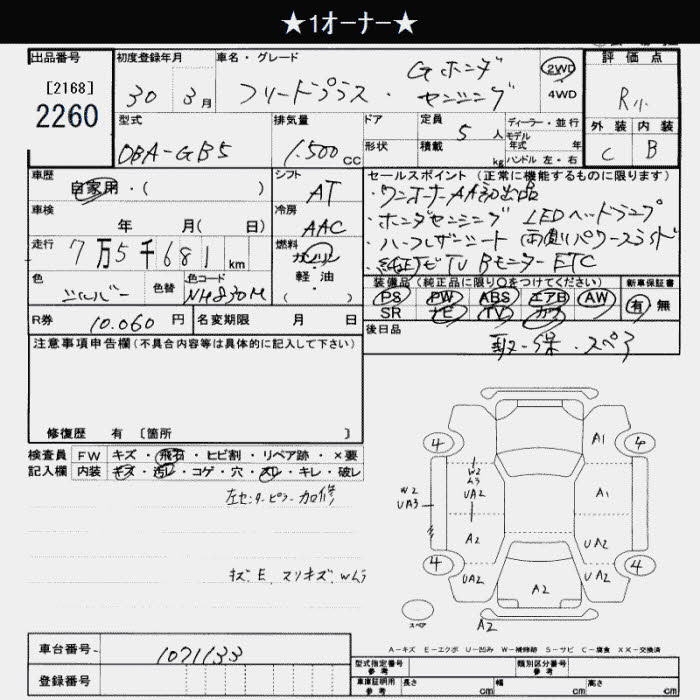 ★1オーナー★
出品番号
[2168]
2260
初度登録年月
30 3月
車名・グレード
フリードプラス・Gホンダセンシング
2WD
4WD
評価点
R小
外装 内装
C B
型式
DBA-GB5
排気量
1.500cc
ドア
形状
定員
5人
積載
kg
ディーラー・並行
モデル
年式 年
ハンドル 左・右
車歴
自家用・( )
シフト
AT
セールスポイント(正常に機能するものに限ります)
・ワンオーナーAA初出品
・ホンダセンシング LEDヘッドランプ
・ハーフレザーシート 両側パワースライド
・純正ナビTV Bモニター ETC
車検
年 月( 日)
冷房
AAC
走行
7万5千681km
燃料
ガソリン
・
軽油
( )
色
シルバー
色替
色コード
NH830M
装備品(純正品に限り○をつけてください)
PS PW ABS エアB AW
SR ナビ TV カワ
新車保証書
有 無
R券 10.060円
名変期限 月 日
後日品
取・保・スペア
注意事項申告欄(不具合内容等は具体的に記入して下さい)
修復歴 有 〔箇所 〕
検査員
記入欄
FW キズ・飛石・ヒビ割・リペア跡・×要
内装 キズ・汚レ・コゲ・穴・スレ・キレ・破レ
左センターピラー加修
キズ、E、スリキズ、Wムラ
4
4
A1
W2
ムラ
UA2
A1
W2
UA3
A2
UA2
4
4
UA2
UA2
A2
スペア
A2
A-キズ E-エクボ U-凹み W-補修跡 S-サビ C-腐食 XX-交換済
車台番号
1071133
登録番号
型式指定番号
参考
類別区分番号
参考
車庫証明用
参考
長さ cm
幅 cm
高さ cm